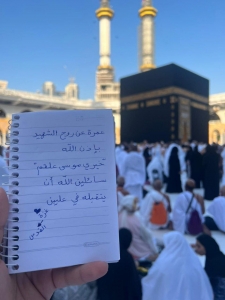 عمرة عن روح الشهيد
بإذن الله
"خيري موسى علقم"
سائلين الله أن
يتقبله في عليين
القدس